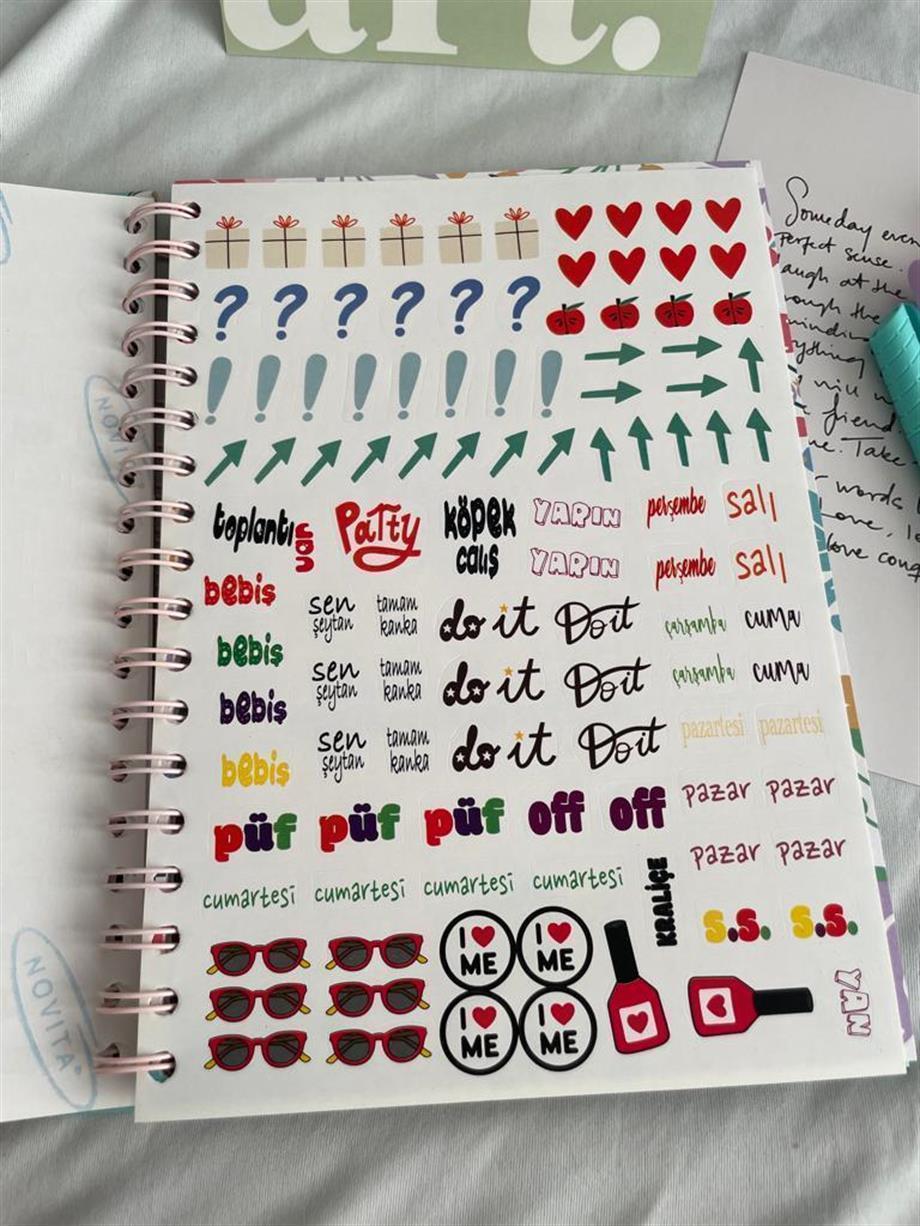 art.
Someday
Perfect sense.
at the
the
friend.
Take
words
Love,
love
NOVITA
? ? ? ? ? ?
! ! ! ! ! ! ! !
toplantı var Party köpek çalış YARIN perşembe salı
YARIN perşembe salı
bebiş sen şeytan tamam kanka do it Do it çarşamba cuma
bebiş sen şeytan tamam kanka do it Do it çarşamba cuma
bebiş sen şeytan tamam kanka do it Do it pazartesi pazartesi
bebiş
püf püf püf off off pazar pazar
pazar pazar
cumartesi cumartesi cumartesi cumartesi KRALİÇE
s.s. s.s.
I ME I ME
I ME I ME
YAN